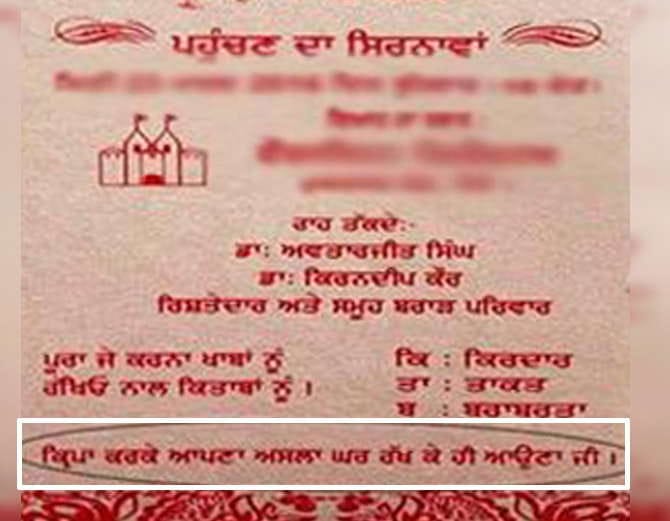 ਪਹੁੰਚਣ ਦਾ ਸਿਰਨਾਵਾਂ
ਰਾਹ ਤੱਕਦੇ:-
ਡਾ: ਅਵਤਾਰਜੀਤ ਸਿੰਘ
ਡਾ: ਕਿਰਨਦੀਪ ਕੌਰ
ਰਿਸ਼ਤੇਦਾਰ ਅਤੇ ਸਮੂਹ ਬਰਾੜ ਪਰਿਵਾਰ
ਪੂਰਾ ਜੇ ਕਰਨਾ ਖਾਬਾਂ ਨੂੰ
ਰੱਖਿਓ ਨਾਲ ਕਿਤਾਬਾਂ ਨੂੰ ।
ਕਿ : ਕਿਰਦਾਰ
ਤਾ : ਤਾਕਤ
ਬ : ਬਰਾਬਰਤਾ
ਕ੍ਰਿਪਾ ਕਰਕੇ ਆਪਣਾ ਅਸਲਾ ਘਰ ਰੱਖ ਕੇ ਹੀ ਆਉਣਾ ਜੀ ।